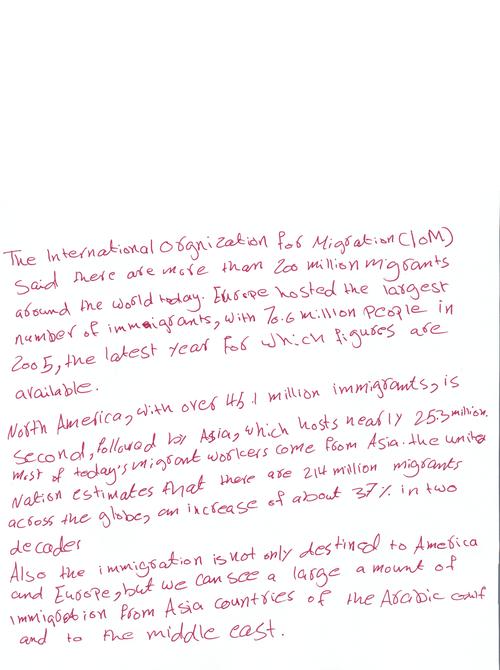 The International Orgnization for Migration (IOM)
Said there are more than 200 million migrants
around the world today. Europe hosted the largest
number of immigrants, with 70.6 million people in
2005, the latest year for which figures are
available.
North America, with over 45.1 million immigrants, is
second, followed by Asia, which hosts nearly 25.3 million.
most of today's migrant workers come from Asia. the unite
Nation estimates that there are 214 million migrants
across the globe, an increase of about 37% in two
decades
Also the immigration is not only destined to America
and Europe, but we can see a large amount of
immigration from Asia countries of the Arabic Gulf
and to the middle east.